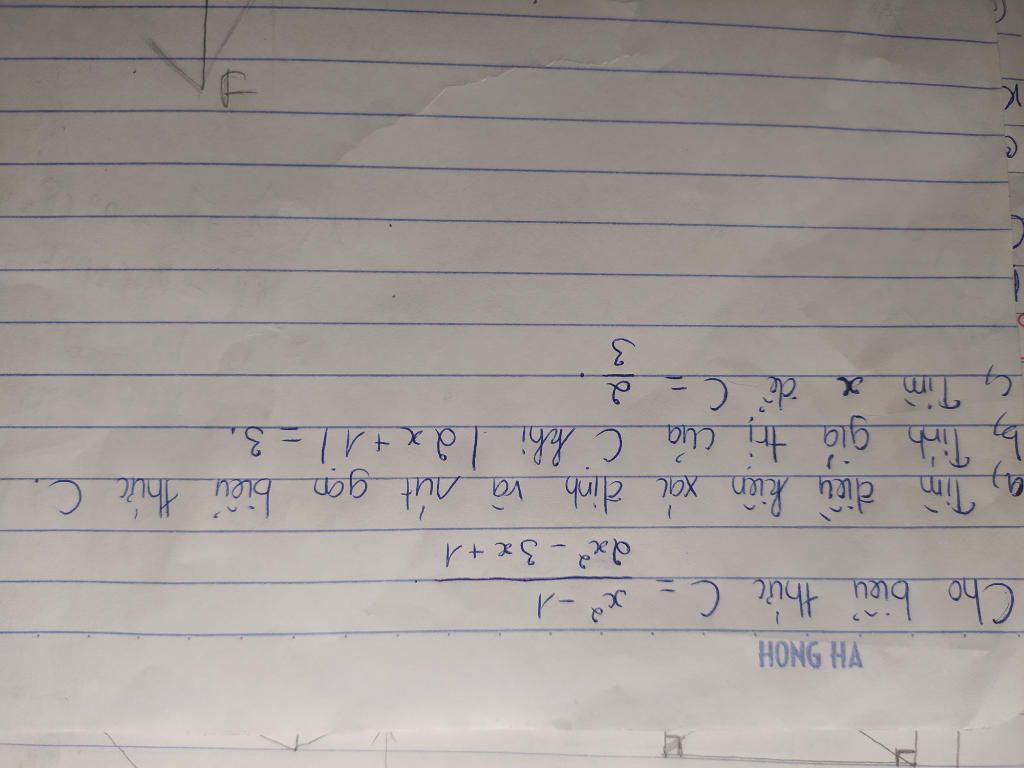 HONG HA
Cho biểu thức C = \frac{x² - 1}{2x² - 3x + 1}
a, Tìm điều kiện xác định và rút gọn biểu thức C.
b, Tính giá trị của C khi |2x + 1| = 3.
c, Tìm x để C = \frac{2}{3}.